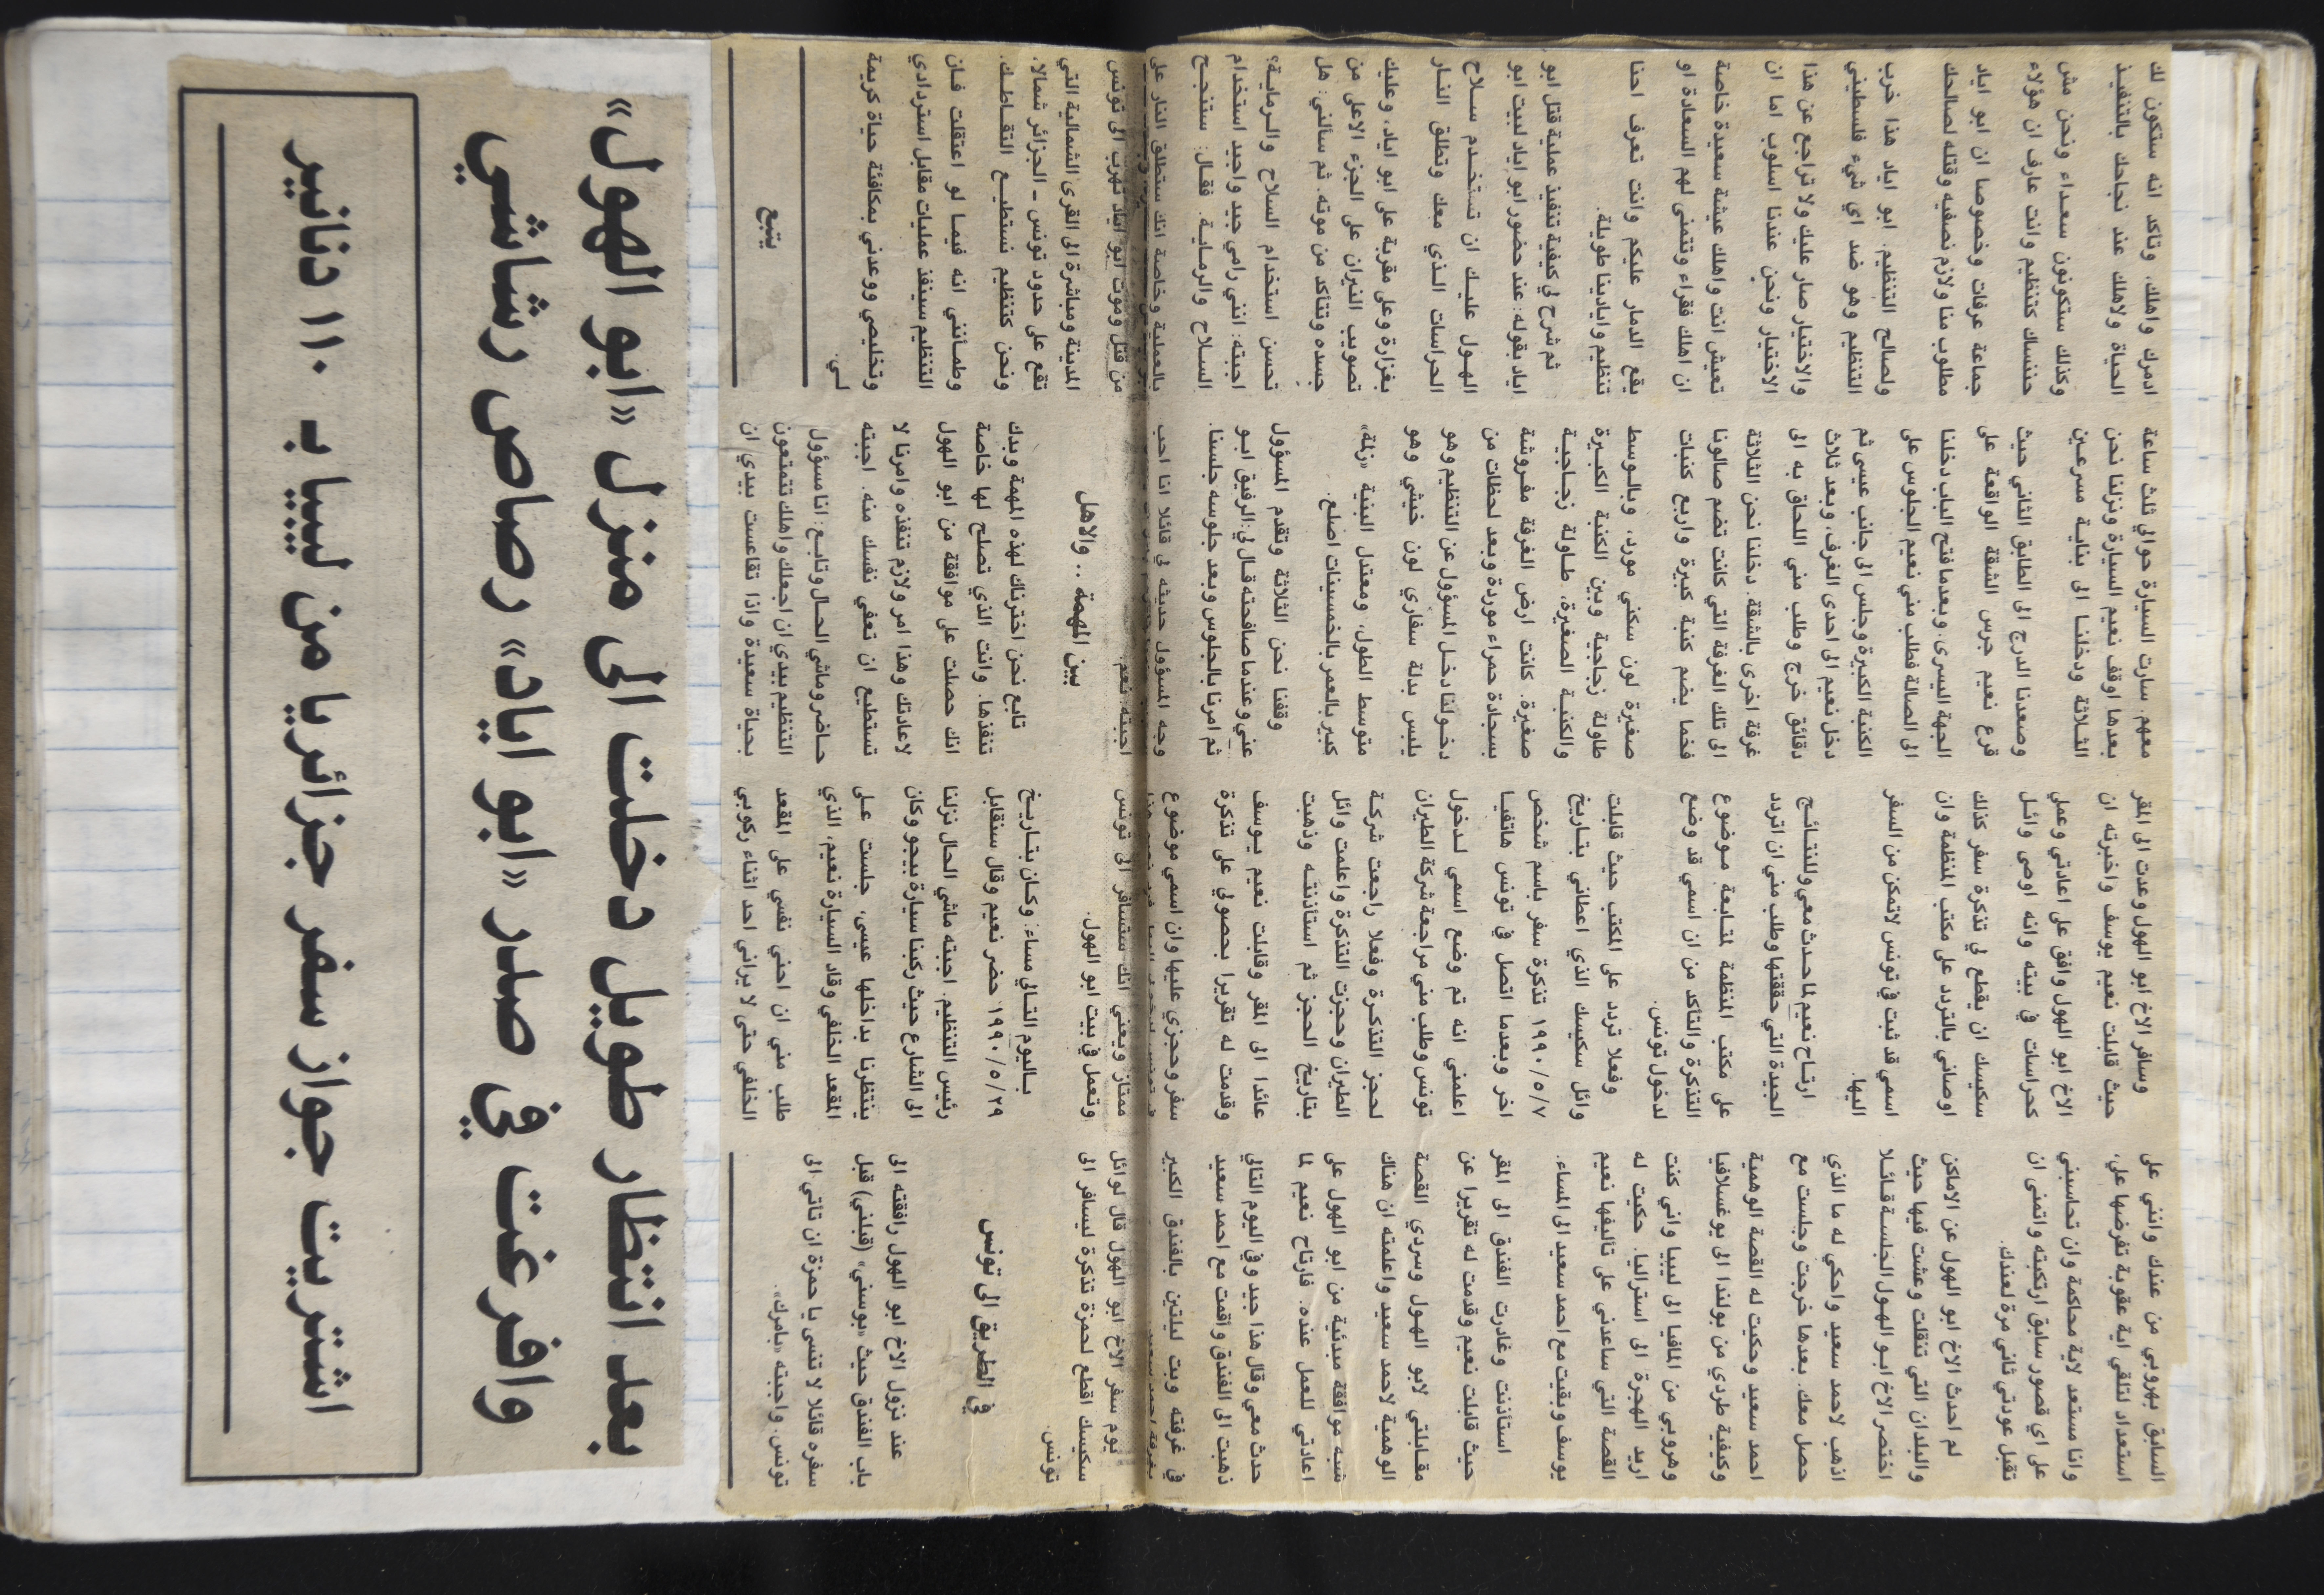 بعد انتظار طويل دخلت الى منزل «ابو الهول»
وافرغت في صدر «ابو اياد» رصاص رشاشي
اشتريت جواز سفر جزائريا من ليبيا بـ ١١٠ دنانير
السابق بهروبي من عندك وانني على
استعداد لتلقي اية عقوبة تفرضها علي،
وانا مستعد لاية محاكمة وان تحاسبني
على اي قصور سابق ارتكبته واتمنى ان
تقبل عودتي ثاني مرة لعندك.
لم احدث الاخ ابو الهول عن الاماكن
والبلدان التي تنقلت وعشت فيها حيث
اختصر الاخ ابو الهول الجلسة قائلا
اذهب لاحمد سعيد واحكي له ما الذي
حصل معك. بعدها خرجت وجلست مع
احمد سعيد وحكيت له القصة الوهمية
وكيفية طردي من بولندا الى يوغسلافيا
وهروبي من المافيا الى ليبيا واني كنت
اريد الهجرة الى استراليا. حكيت له
القصة التي ساعدني على تأليفها نعيم
يوسف وبقيت مع احمد سعيد الى المساء.
استأذنت وغادرت الفندق الى المقر
حيث قابلت نعيم وقدمت له تقريرا عن
مقابلتي لابو الهول وسردي القصة
الوهمية لاحمد سعيد واعلمته ان هناك
شبه موافقة مبدئية من ابو الهول على
اعادتي للعمل عنده. فارتاح نعيم لما
حدث معي وقال هذا جيد وفي اليوم التالي
ذهبت الى الفندق واقمت مع احمد سعيد
في غرفته وبت ليلتين بالفندق الكبير
بغرفة احمد سعيد
يوم سفر الاخ ابو الهول قال لوائل
سكيسك اقطع لحمزة تذكرة ليسافر الى
تونس.
في الطريق الى تونس
عند نزول الاخ ابو الهول رافقته الى
باب الفندق حيث «بوسني» (قبلني) قبل
سفره قائلا لا تنسى يا حمزة ان تأتي الى
تونس. واجبته «بامرك».
وسافر الاخ ابو الهول وعدت الى المقر
حيث قابلت نعيم يوسف واخبرته ان
الاخ ابو الهول وافق على اعادتي وعملي
كحراسات في بيته وانه اوصى وائل
سكيسك ان يقطع لي تذكرة سفر كذلك
اوصاني بالتردد على مكتب المنظمة وان
اسمي قد ثبت في تونس لاتمكن من السفر
اليها.
ارتاح نعيم لما حدث معي وللنتائج
الجيدة التي حققتها وطلب مني ان اتردد
على مكتب المنظمة لمتابعة موضوع
التذكرة والتأكد من ان اسمي قد وضع
لدخول تونس.
وفعلا تردد على المكتب حيث قابلت
وائل سكيسك الذي اعطاني بتاريخ
١٩٩٠/٥/٧ تذكرة سفر باسم شخص
اخر وبعدما اتصل في تونس هاتفيا
اعلمني انه تم وضع اسمي لدخول
تونس وطلب مني مراجعة شركة الطيران
لحجز التذكرة وفعلا راجعت شركة
الطيران وحجزت التذكرة واعلمت وائل
بتاريخ الحجز ثم استأذنته وذهبت
عائدا الى المقر وقابلت نعيم يوسف
وقدمت له تقريرا بحصولي على تذكرة
سفر وحجزي عليها وان اسمي موضوع
ممتاز ويعني انك ستسافر الى تونس
وتعمل في بيت ابو الهول.
باليوم التالي مساء: وكان بتاريخ
١٩٩٠/٥/٢٩ حضر نعيم وقال سنقابل
رئيس التنظيم. اجبته ماشي الحال نزلنا
الى الشارع حيث ركبنا سيارة بيجو وكان
ينتظرنا بداخلها عيسى، جلست على
المقعد الخلفي وقاد السيارة نعيم، الذي
طلب مني ان احني نفسي على المقعد
الخلفي حتى لا يراني احد اثناء ركوبي
معهم. سارت السيارة حوالي ثلث ساعة
بعدها اوقف نعيم السيارة ونزلنا نحن
الثلاثة ودخلنا الى بناية مسرعين
وصعدنا الدرج الى الطابق الثاني حيث
قرع نعيم جرس الشقة الواقعة على
الجهة اليسرى. وبعدما فتح الباب دخلنا
الى الصالة فطلب مني نعيم الجلوس على
الكنبة الكبيرة وجلس الى جانب عيسى ثم
دخل نعيم الى احدى الغرف، وبعد ثلاث
دقائق خرج وطلب مني اللحاق به الى
غرفة اخرى بالشقة. دخلنا نحن الثلاثة
الى تلك الغرفة التي كانت تضم صالونا
فخما يضم كنبة كبيرة واربع كنبات
صغيرة لون سكني مورد، وبالوسط
طاولة زجاجية وبين الكنبة الكبيرة
والكنبة الصغيرة، طاولة زجاجية
صغيرة. كانت ارض الغرفة مفروشة
بسجادة حمراء موردة وبعد لحظات من
دخولنا دخل المسؤول عن التنظيم وهو
يلبس بدلة سفاري لون خيشي وهو
متوسط الطول، ومعتدل البنية «زلمة»
كبير بالعمر بالخمسينات اصلع.
وقفنا نحن الثلاثة وتقدم المسؤول
عني وعندما صافحته قال لي: الرفيق ابو
ثم امرنا بالجلوس وبعد جلوسه جلسنا.
وجه المسؤول حديثه لي قائلا انا احب
اجبته: نعم.
بين المهمة .. والاهل
تابع نحن اخترناك لهذه المهمة وبدك
تنفذها. وانت الذي تصلح لها خاصة
انك حصلت على موافقة من ابو الهول
لاعادتك وهذا امر ولازم تنفذه وامرنا لا
تستطيع ان تعفي نفسك منه. اجبته
حاضر وماشي الحال وتابع: انا مسؤول
التنظيم بيدي ان اجعلك واهلك تتمتعون
بحياة سعيدة واذا تقاعست بيدي ان
ادمرك واهلك، وتأكد انه ستكون لك
الحياة ولاهلك عند نجاحك بالتنفيذ
وكذلك ستكونون سعداء ونحن مش
حننساك كتنظيم وانت عارف ان هؤلاء
جماعة عرفات وخصوصا ان ابو اياد
مطلوب منا ولازم نصفيه وقتله لصالحك
ولصالح التنظيم. ابو اياد هذا خرب
التنظيم وهو ضد اي شيء فلسطيني
والاختيار صار عليك ولا تراجع عن هذا
الاختيار ونحن عندنا اسلوب اما ان
تعيش انت واهلك عيشة سعيدة خاصة
ان اهلك فقراء ونتمنى لهم السعادة او
يقع الدمار عليكم وانت تعرف احنا
تنظيم وايادينا طويلة.
ثم شرح لي كيفية تنفيذ عملية قتل ابو
اياد بقوله: عند حضور ابو اياد لبيت ابو
الهول عليك ان تستخدم سلاح
الحراسات الذي معك وتطلق النار
بغزارة وعلى مقربة على ابو اياد، وعليك
تصويب النيران على الجزء الاعلى من
جسده وتتأكد من موته. ثم سألني: هل
تحسن استخدام السلاح والرماية؟
اجبته: انني رامي جيد واجيد استخدام
السلاح والرماية. فقال: ستنجح
بالعملية وخاصة انك ستطلق النار على
من قتل وموت ابو اياد تهرب الى تونس
المدينة ومباشرة الى القرى الشمالية التي
تقع على حدود تونس ــ الجزائر شمالا.
ونحن كتنظيم نستطيع التقاطك.
وطمأنني انه فيما لو اعتقلت فان
التنظيم سينفذ عمليات مقابل استردادي
وتخليصي ووعدني بمكافئة حياة كريمة
لي.
يتبع